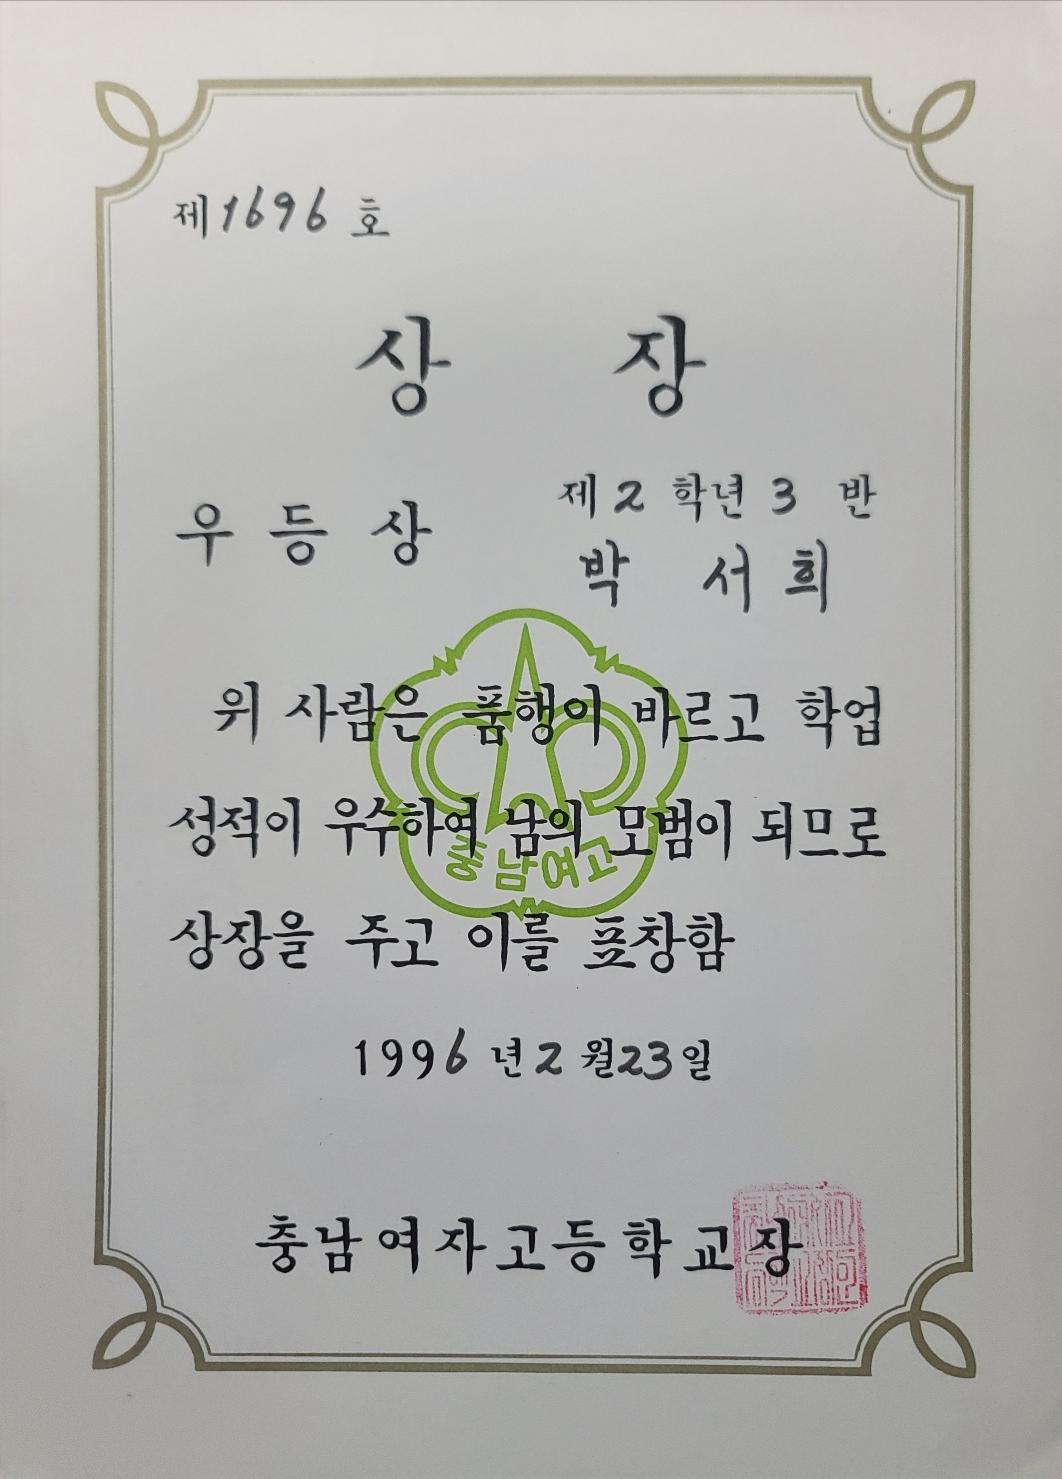 제1696 호
상 장
우등상
제2 학년 3 반
박 서희
위 사람은 품행이 바르고 학업
성적이 우수하여 남의 모범이 되므로
충남여고
상장을 주고 이를 표창함
1996 년 2 월 23 일
충남여자고등학교장